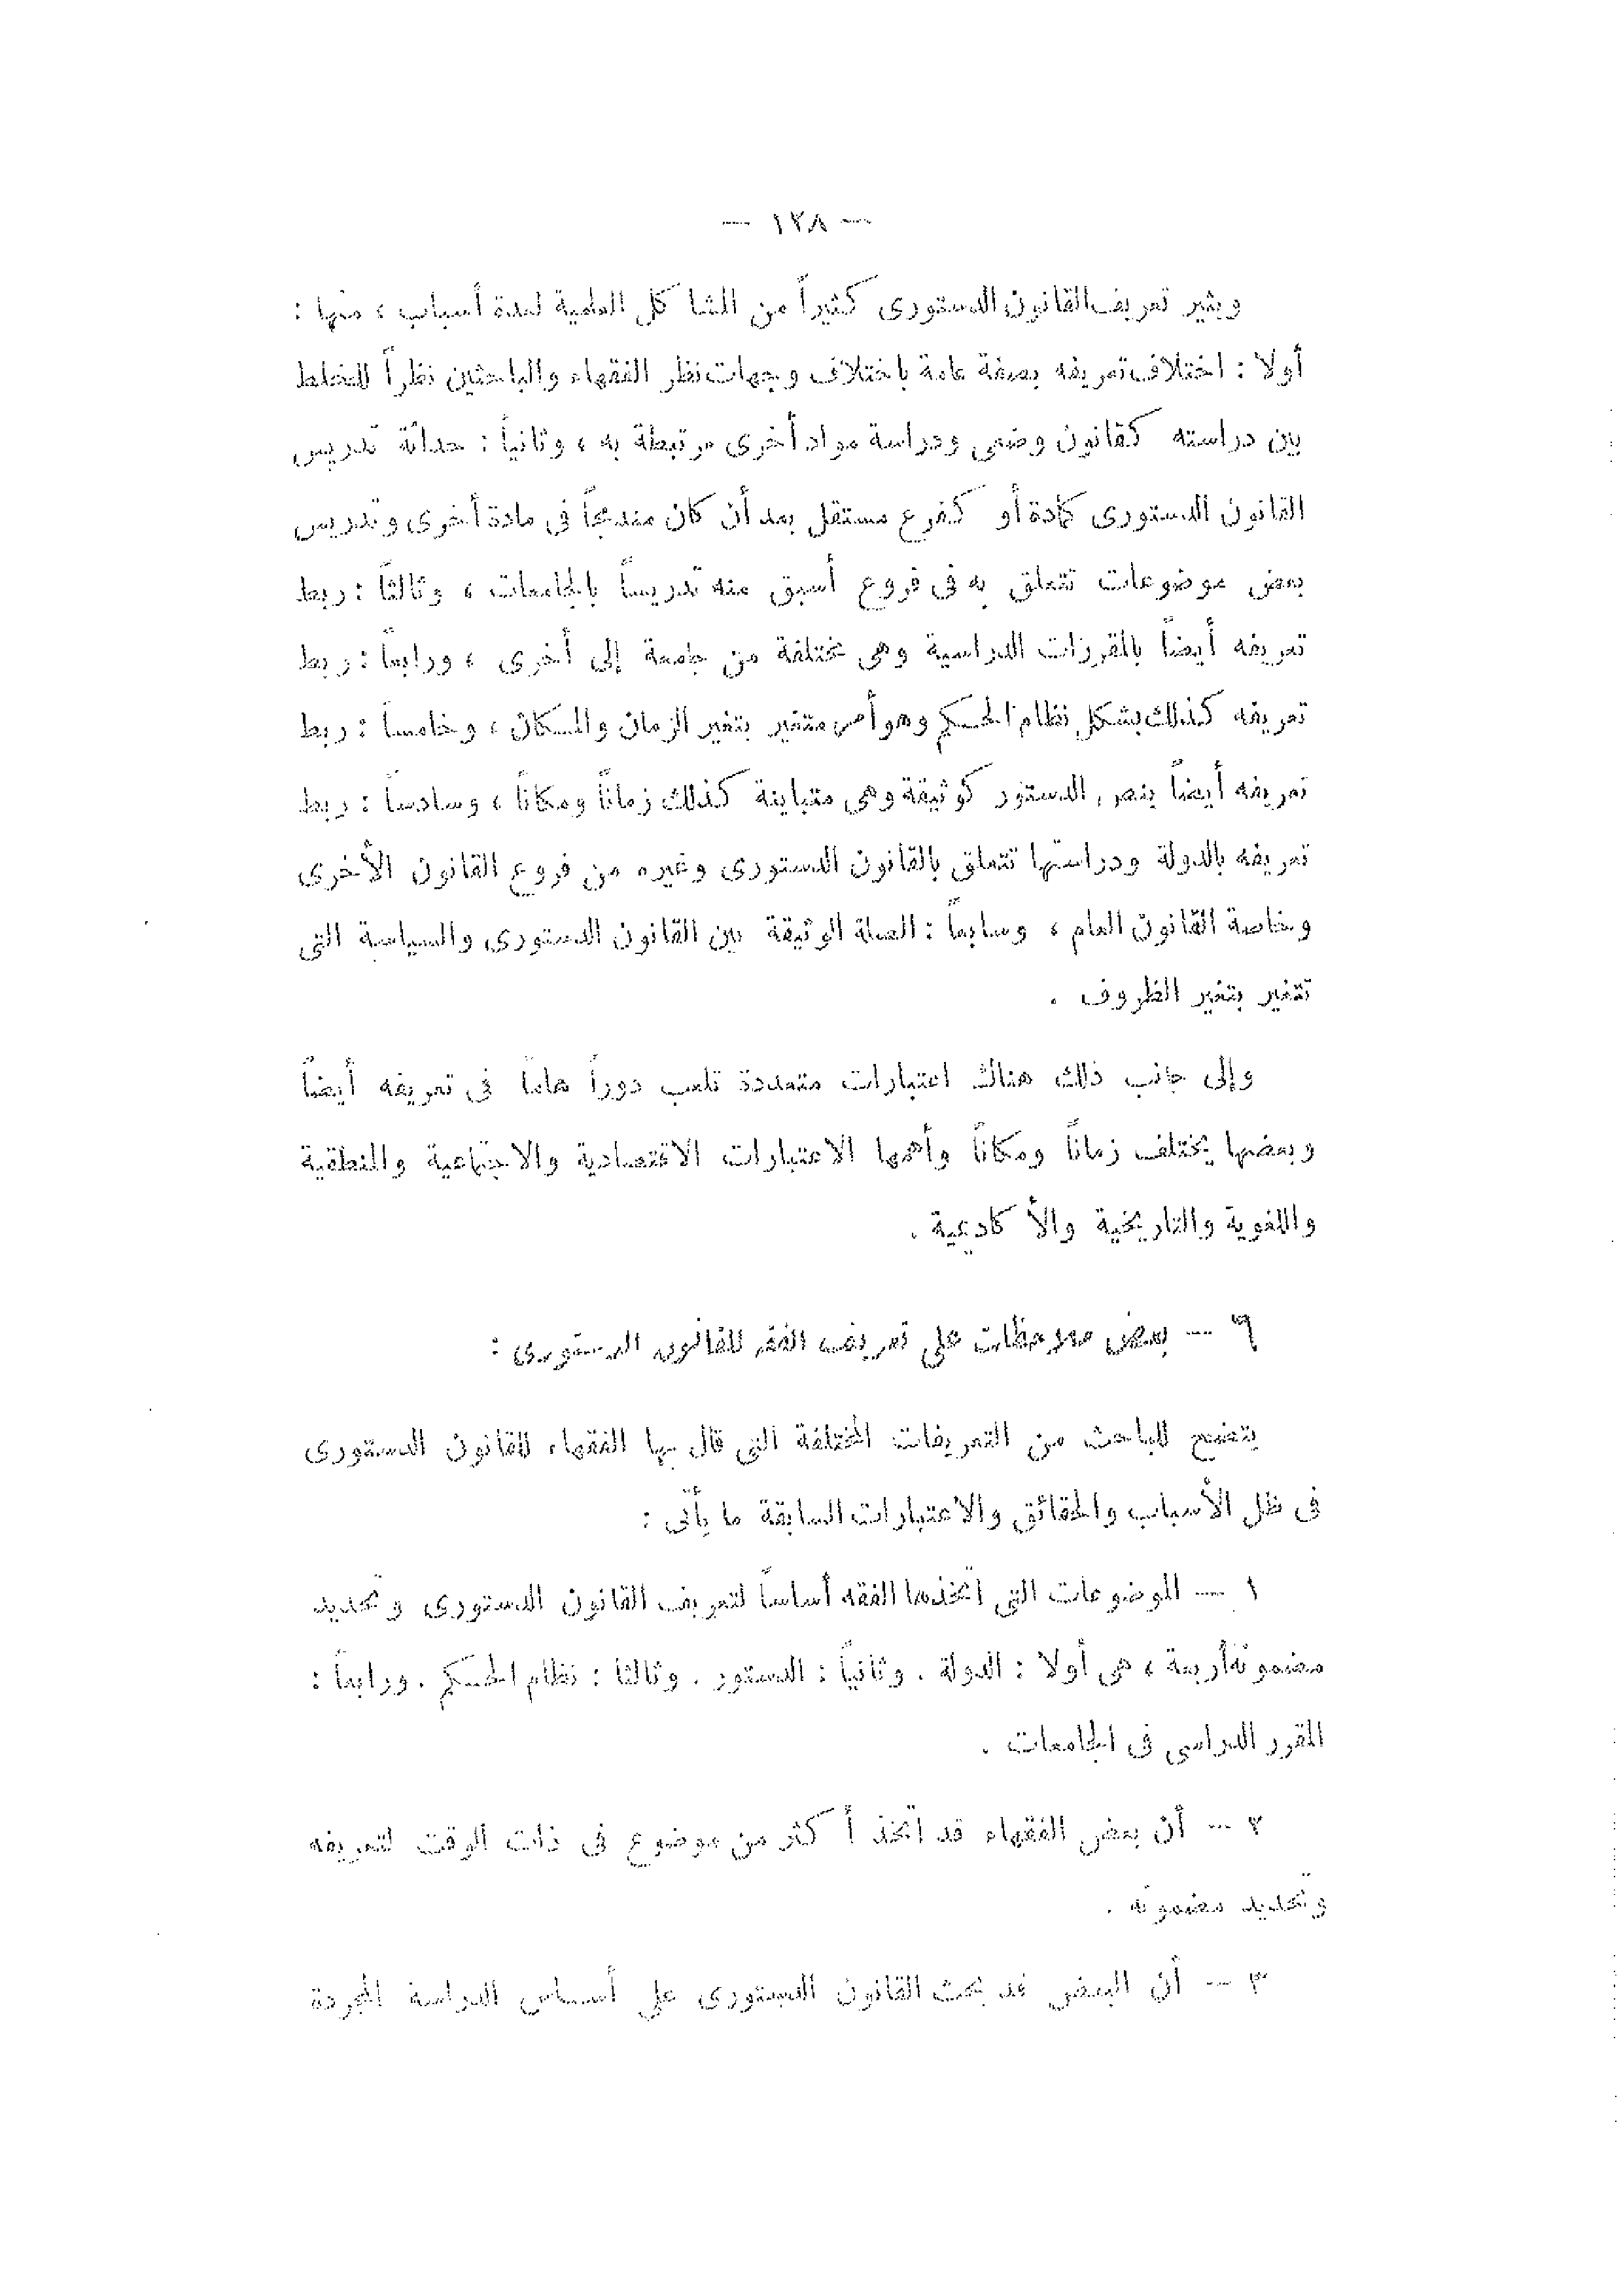 — ١٢٨ —
ويثير تعريف القانون الدستورى كثيراً من المشاكل العلمية لعدة أسباب ، منها :
أولا : اختلاف تعريفه بصفة عامة باختلاف وجهات نظر الفقهاء والباحثين نظراً للخلط
بين دراسته كقانون وضعى ودراسة مواد أخرى مرتبطة به ، وثانياً : حداثة تدريس
القانون الدستورى كمادة أو كفرع مستقل بعد أن كان مندمجاً فى مادة أخرى وتدريس
بعض موضوعات تتعلق به فى فروع أسبق منه تدريساً بالجامعات ، وثالثاً : ربط
تعريفه أيضاً بالمقررات الدراسية وهى مختلفة من جامعة إلى أخرى ، ورابعاً : ربط
تعريفه كذلك بشكل نظام الحكم وهو أمر متغير بتغير الزمان والمكان ، وخامساً : ربط
تعريفه أيضاً بنص الدستور كوثيقة وهى متباينة كذلك زماناً ومكاناً ، وسادساً : ربط
تعريفه بالدولة ودراستها تتعلق بالقانون الدستورى وغيره من فروع القانون الأخرى
وبخاصة القانون العام ، وسابعاً : الصلة الوثيقة بين القانون الدستورى والسياسة التى
تتغير بتغير الظروف .
وإلى جانب ذلك هناك اعتبارات متعددة تلعب دوراً هاماً فى تعريفه أيضاً
وبعضها يختلف زماناً ومكاناً وأهمها الاعتبارات الاقتصادية والاجتماعية والمنطقية
واللغوية والتاريخية والأكاديمية .
٦ — بعض ملاحظات على تعريف الفقه للقانون الدستورى :
يتضح للباحث من التعريفات المختلفة التى قال بها الفقهاء للقانون الدستورى
فى ظل الأسباب والحقائق والاعتبارات السابقة ما يأتى :
١ — الموضوعات التى اتخذها الفقه أساساً لتعريف القانون الدستورى وتحديد
مضمونه أربعة ، هى أولا : الدولة . وثانياً : الدستور . وثالثا : نظام الحكم . ورابعاً :
المقرر الدراسى فى الجامعات .
٢ — أن بعض الفقهاء قد اتخذ أكثر من موضوع فى ذات الوقت لتعريفه
وتحديد مضمونه .
٣ — أن البعض قد بحث القانون الدستورى على أساس الدراسة المجردة